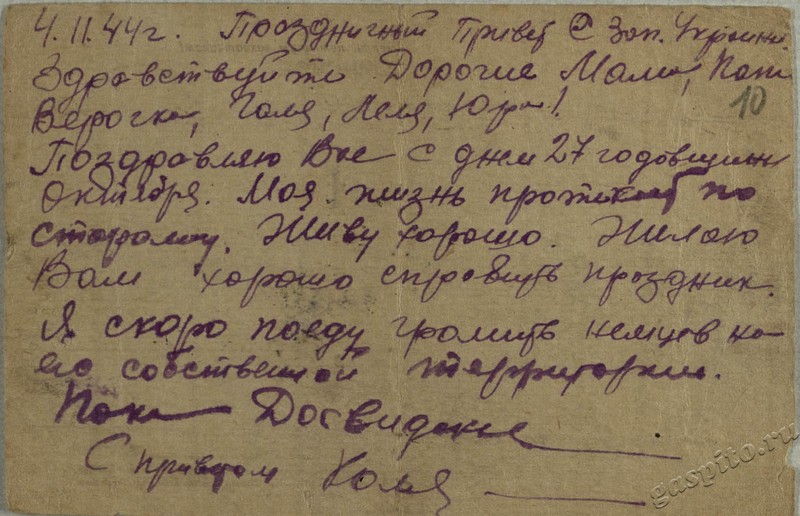 4.11.44г. Праздничный Привет С Зап. Украины
Здравствуйте Дорогие Мама, Папа
Верочка, Галя, Леля, Юра!
10
Поздравляю Вас с днем 27 годовщины
Октября. Моя жизнь протекает по
старому. Живу хорошо. Желаю
Вам хорошо справить праздник.
Я скоро поеду громить немцев на
его собственной территории.
Пока Досвидание
С приветом Коля
gaspito.ru